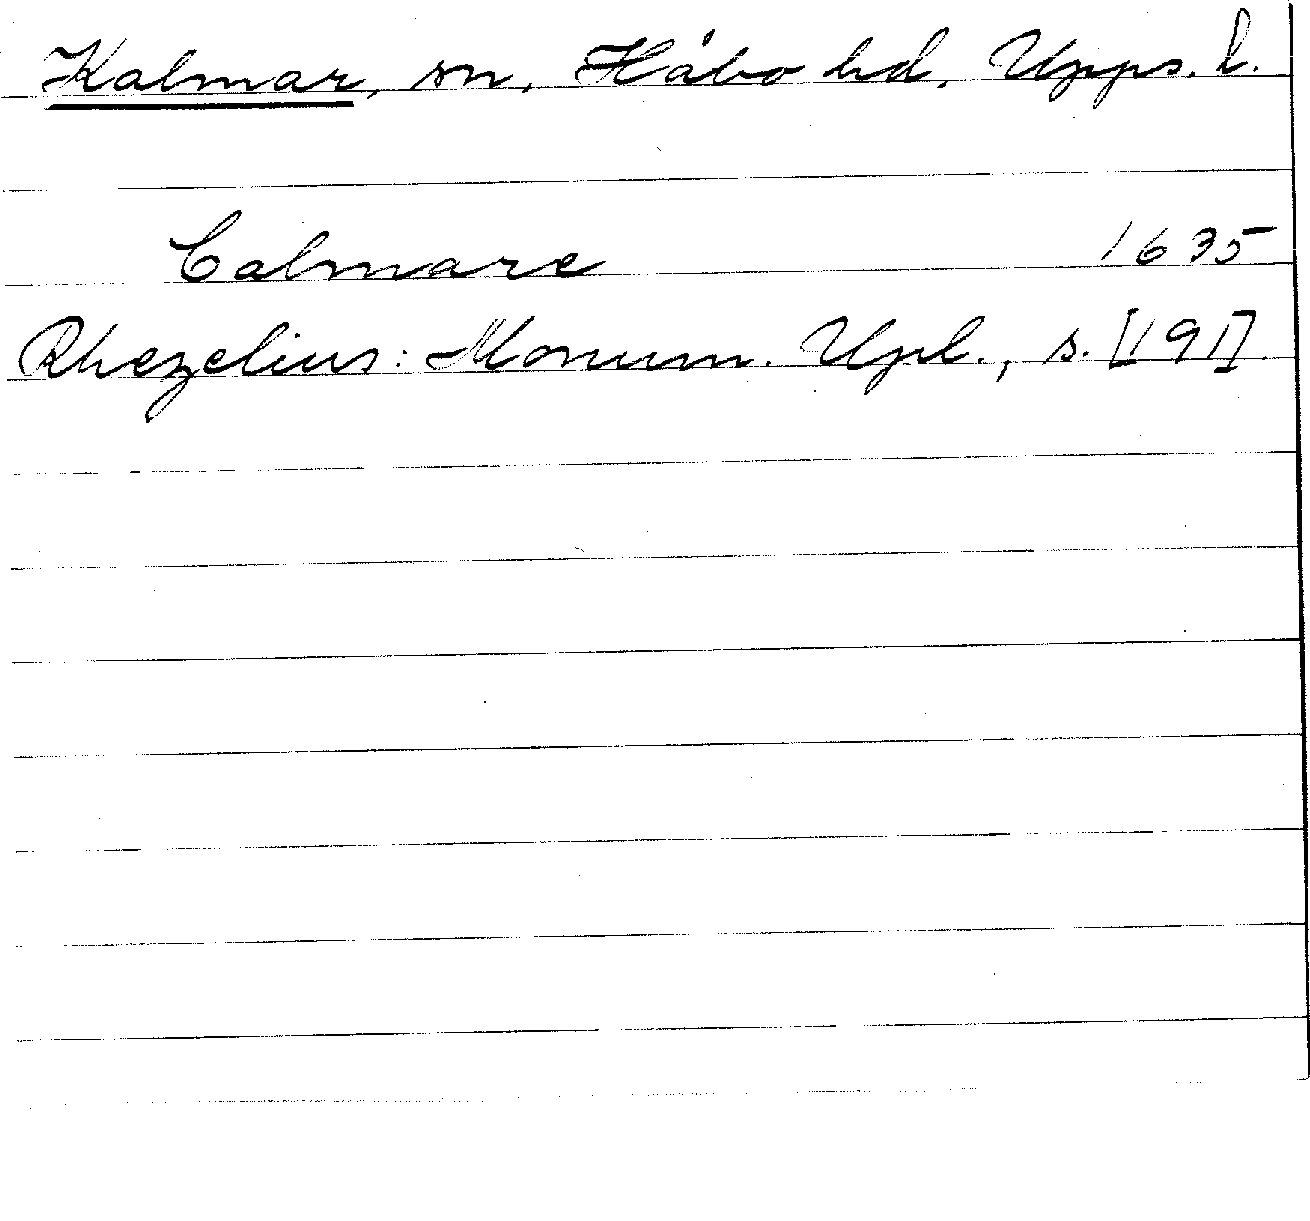 Kalmar, sn, Håbo hd, Upps. l.
Calmare 1635
Rhezelius: Monum. Upl., s. [191].